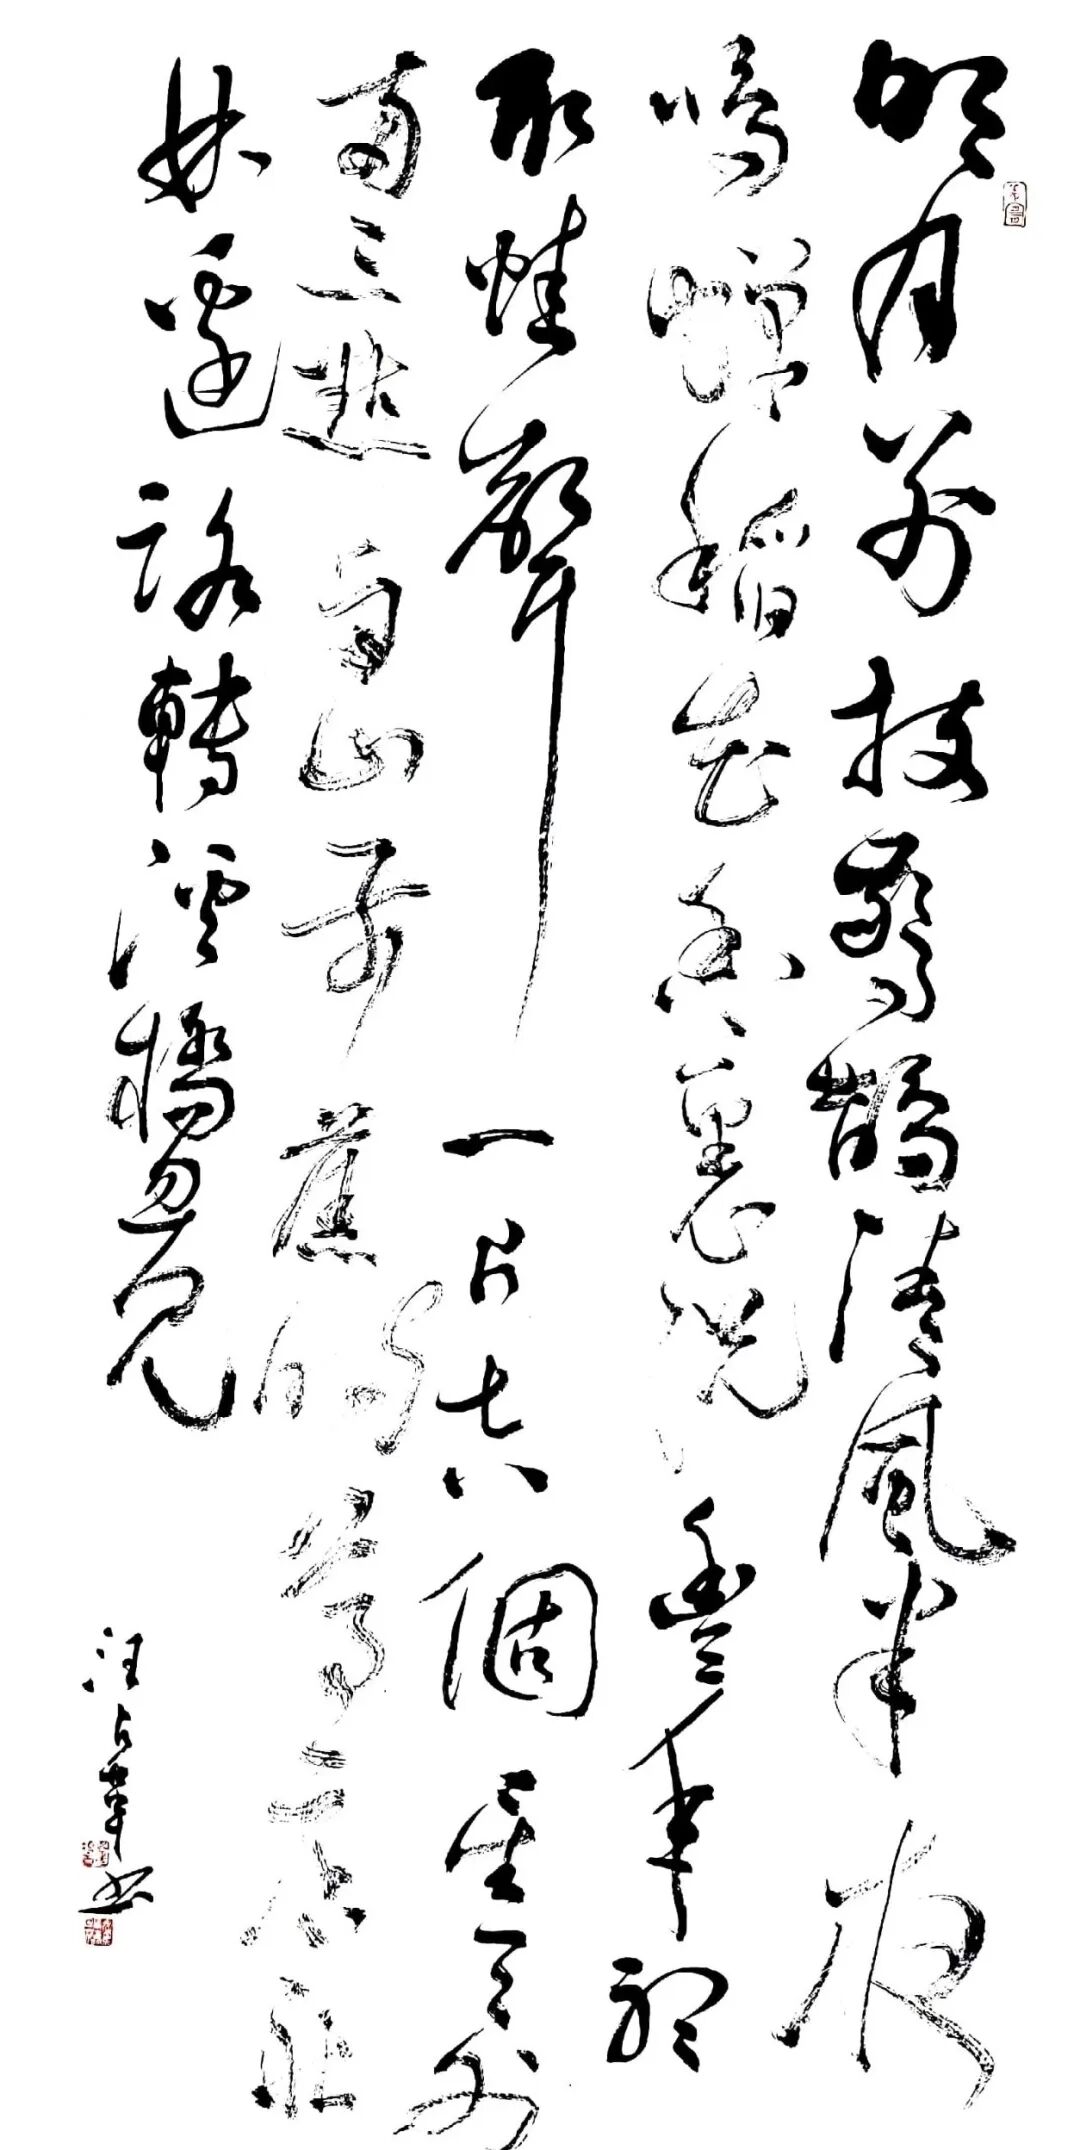 明月别枝驚鵲清風半夜
鳴蟬稻花香裏說豐年聽
取蛙聲一片七八個星天外
兩三點雨山前舊時茅店社
林邊路轉溪橋忽見
汪占革书